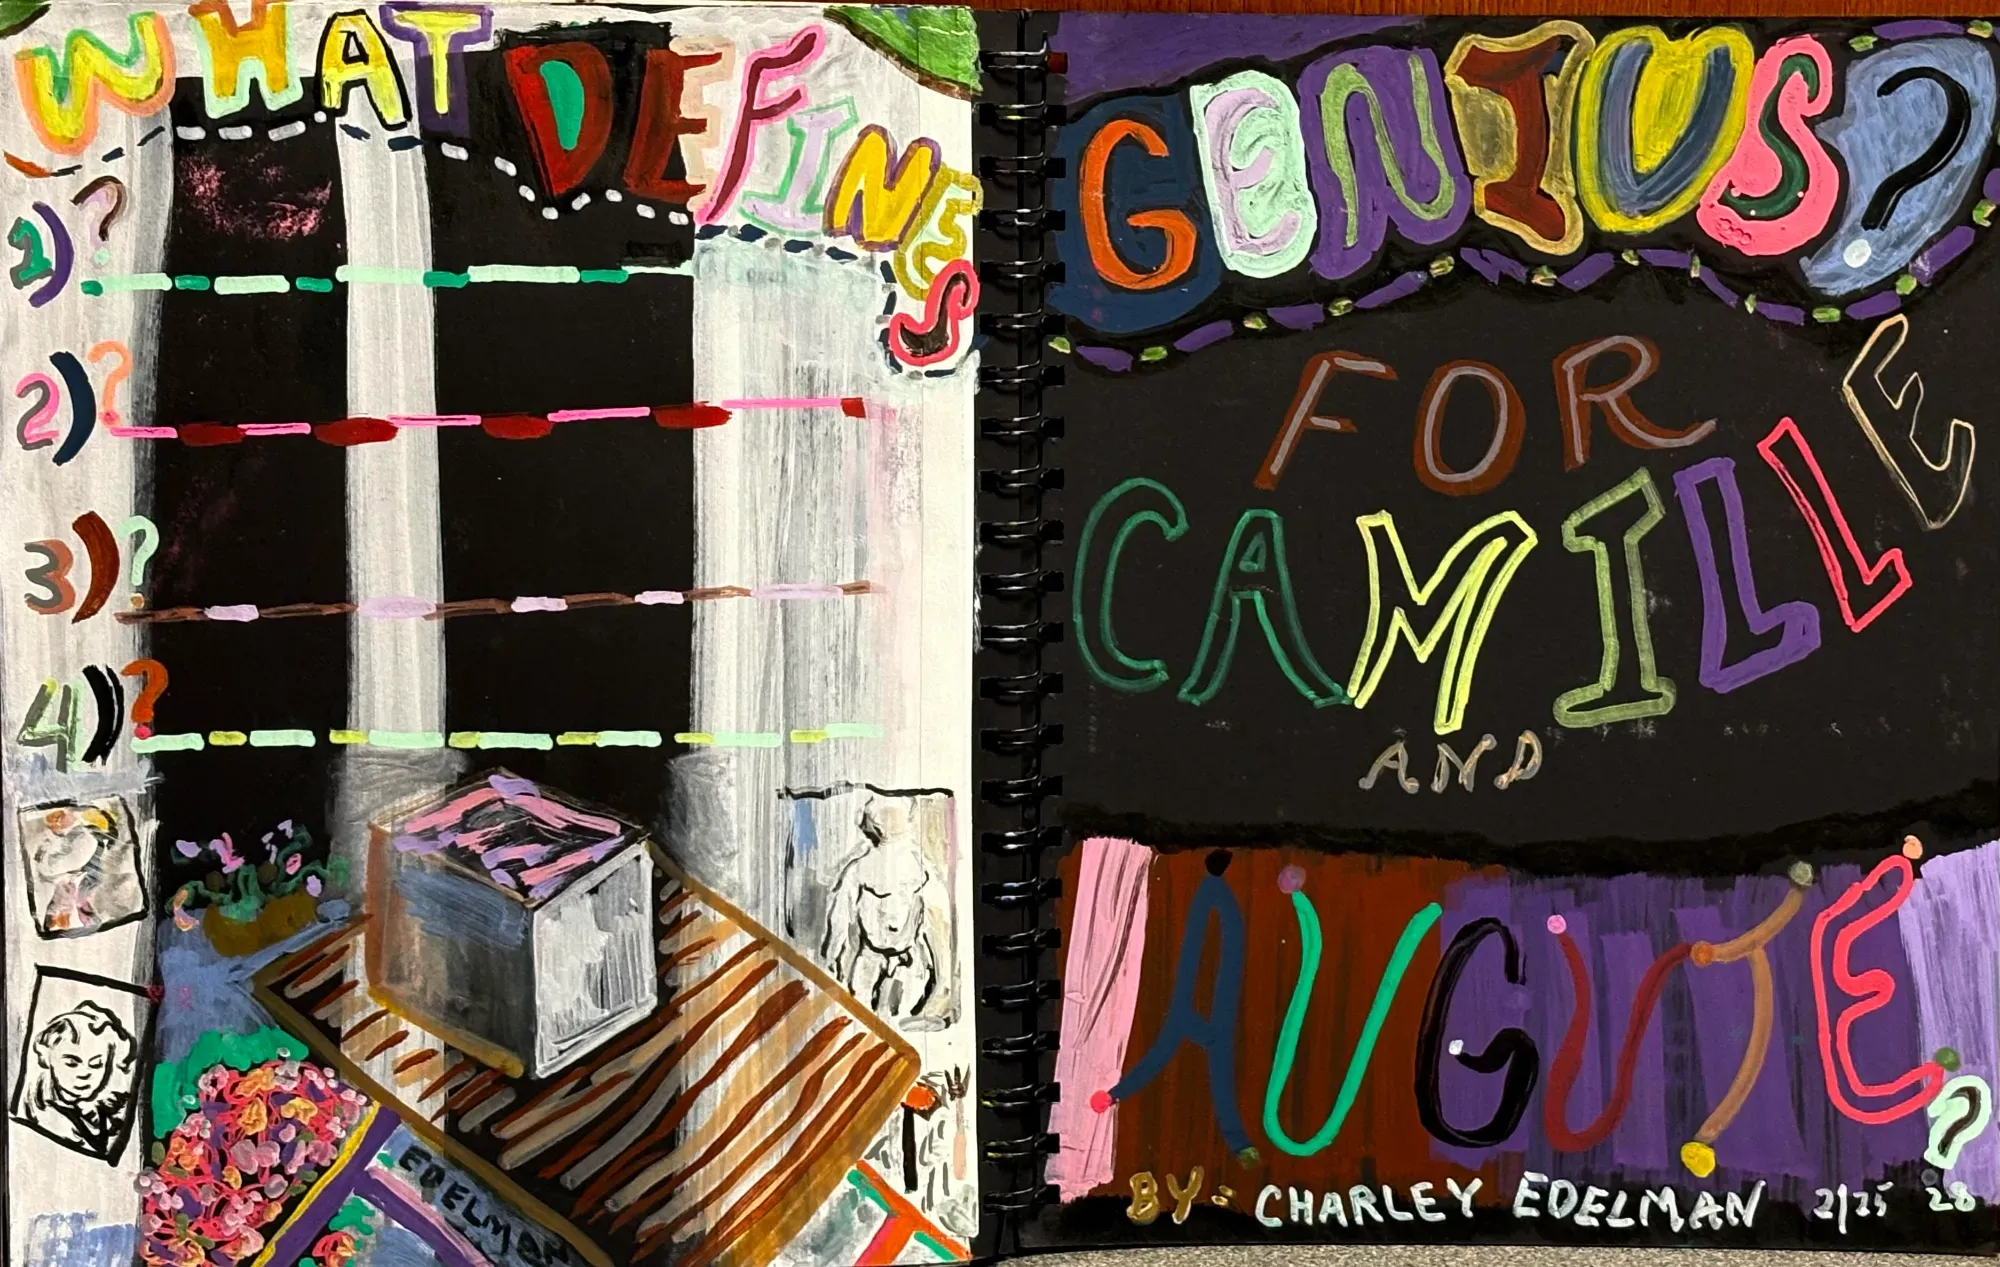 WHAT DEFINES
1)?
2)?
3)?
4)?
EDELMAN
GENIUS?
FOR
CAMILLE
AND
AUGUTE?
BY: CHARLEY EDELMAN 2/25 28